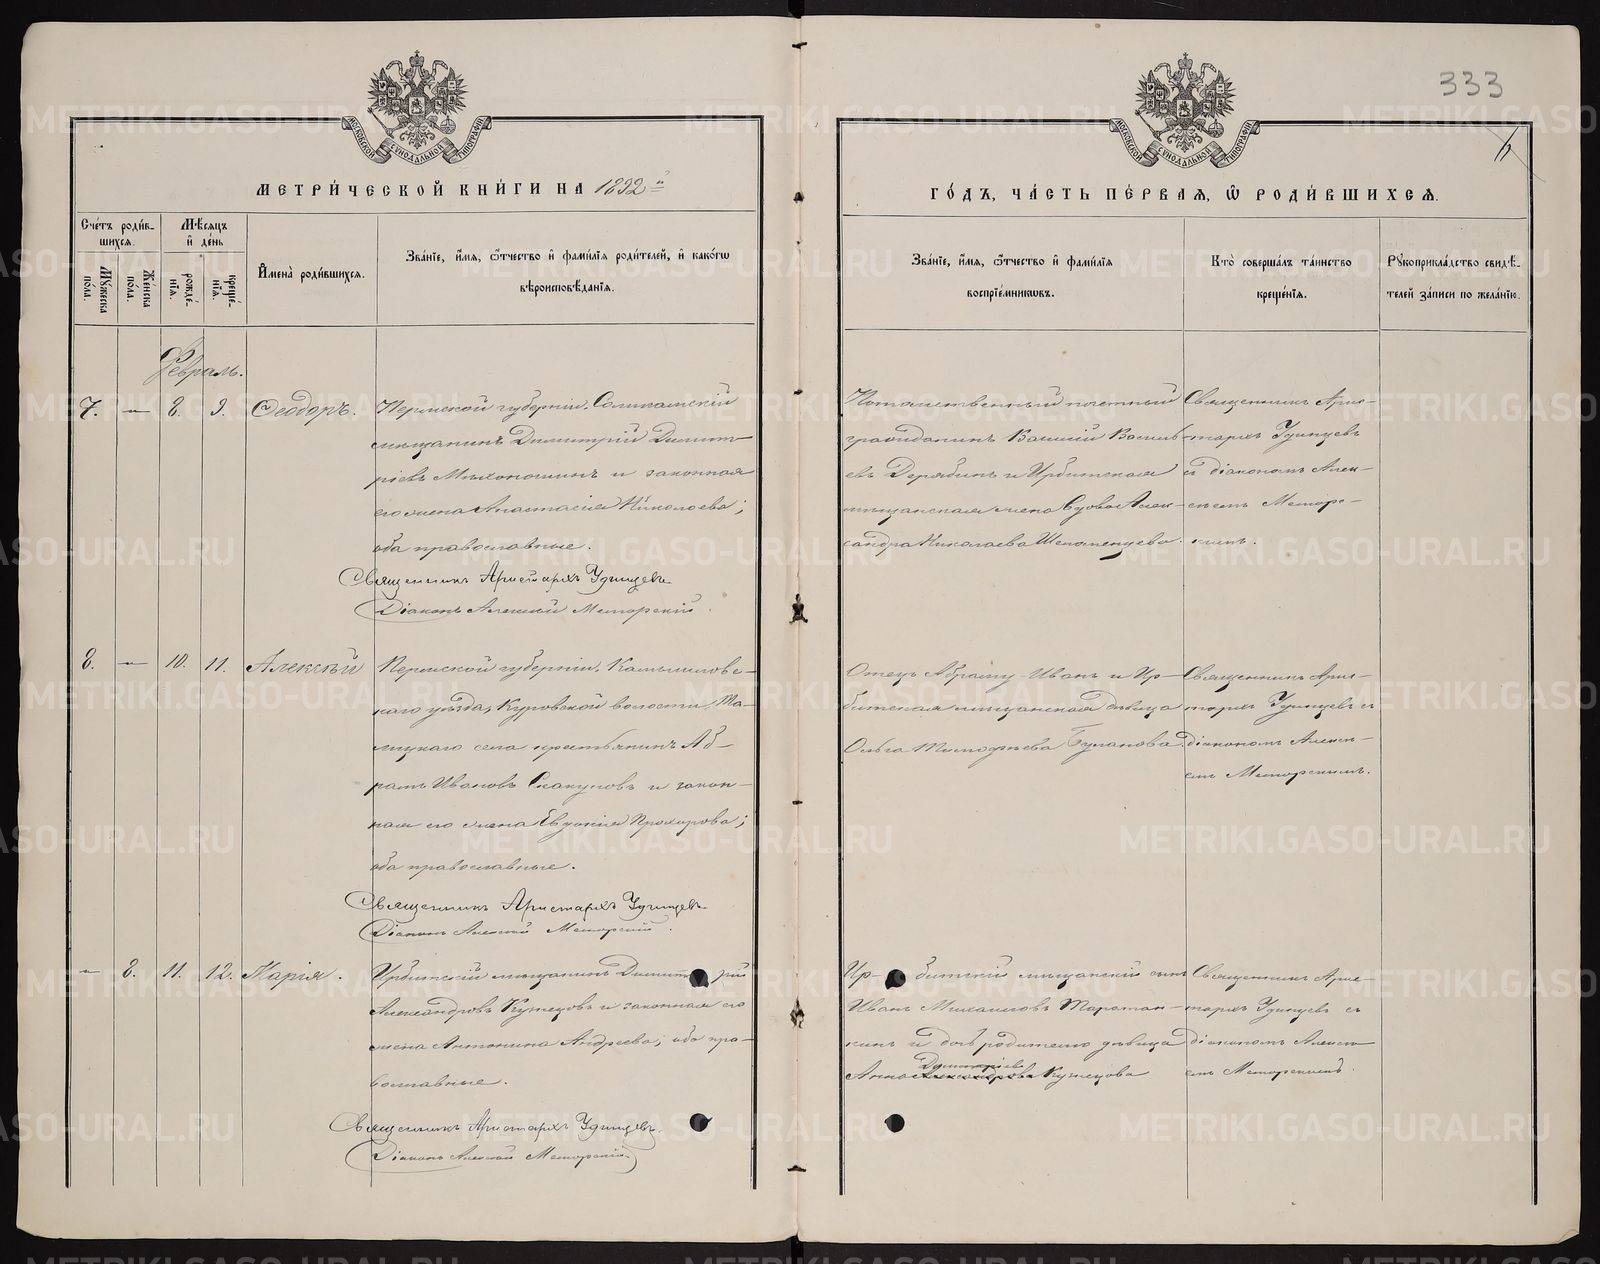 333
МОСКОВСКОЙ СѴНОДАЛЬНОЙ ТИПОГРАФІИ
МОСКОВСКОЙ СѴНОДАЛЬНОЙ ТИПОГРАФІИ
МЕТРИ́ЧЕСКОЙ КНИ́ГИ НА 1892й
ГО́ДЪ, ЧА́СТЬ ПЕ́РВАЯ, Ѽ РОДИ́ВШИХСЯ.
Сче́тъ роди́в-
шихся.
Му́жеска по́ла.
Же́нска по́ла.
Мѣ́сяцъ и де́нь
рожде́нїя.
креще́нїя.
Имена̀ роди́вшихся.
Зва́нїе, и́мя, ѻ҆́тчество и фами́лїя роди́телей, и како́гѡ
вѣроисповѣ́данїя.
Зва́нїе, и́мя, ѻ҆́тчество и фами́лїя
воспрїе́мникѡвъ.
Кто̀ соверша́лъ та́инство
креще́нїя.
Рꙋкоприкла́дство свидѣ́-
телей за́писи по жела́нїю.
Февраль.
7. — 8. 9. Ѳеодоръ.
Пермской губерніи. Соликамскій
мѣщанинъ Димитрій Димит-
ріевъ Мѣхоношинъ и законная
его жена Анастасія Николаева;
оба православные.
Священникъ Аристархъ Удинцевъ
Діаконъ Алексій Меморскій.
Потомственный почетный
гражданинъ Василій Василь-
евъ Дерябинъ и Ирбитская
мѣщанская жена вдова Алек-
сандра Николаева Шеломенцева.
Священникъ Арис-
тархъ Удинцевъ
съ діакономъ Алек-
сѣемъ Меморс-
кимъ.
8. — 10. 11. Алексѣй
Пермской губерніи. Камышловс-
каго уѣзда, Куровской волости,
села крестьянинъ Аб-
рамъ Ивановъ Скакуновъ и закон-
ная его жена Евдокія Прохорова;
оба православные.
Священникъ Аристархъ Удинцевъ
Діаконъ Алексій Меморскій.
Отецъ Абраму Иванъ и Ир-
битская мѣщанская дѣвица
Ольга Тимофѣева Буланова.
Священникъ Арис-
тархъ Удинцевъ съ
діакономъ Алексѣ-
емъ Меморскимъ.
— 8. 11. 12. Марія.
Ирбитскій мѣщанинъ Димитрій
Александровъ Кузнецовъ и законная его
жена Антонина Андреева; оба пра-
вославные.
Священникъ Аристархъ Удинцевъ.
Діаконъ Алексій Меморскій.
Ирбитскій мѣщанскій сынъ
Иванъ Михаиловъ Таратан-
кинъ и дочь родителю дѣвица
Дмитріева
Анна Александрова Кузнецова
Священникъ Арис-
тархъ Удинцевъ съ
діакономъ Алексѣ-
емъ Меморскимъ.
METRIKI.GASO-URAL.RU